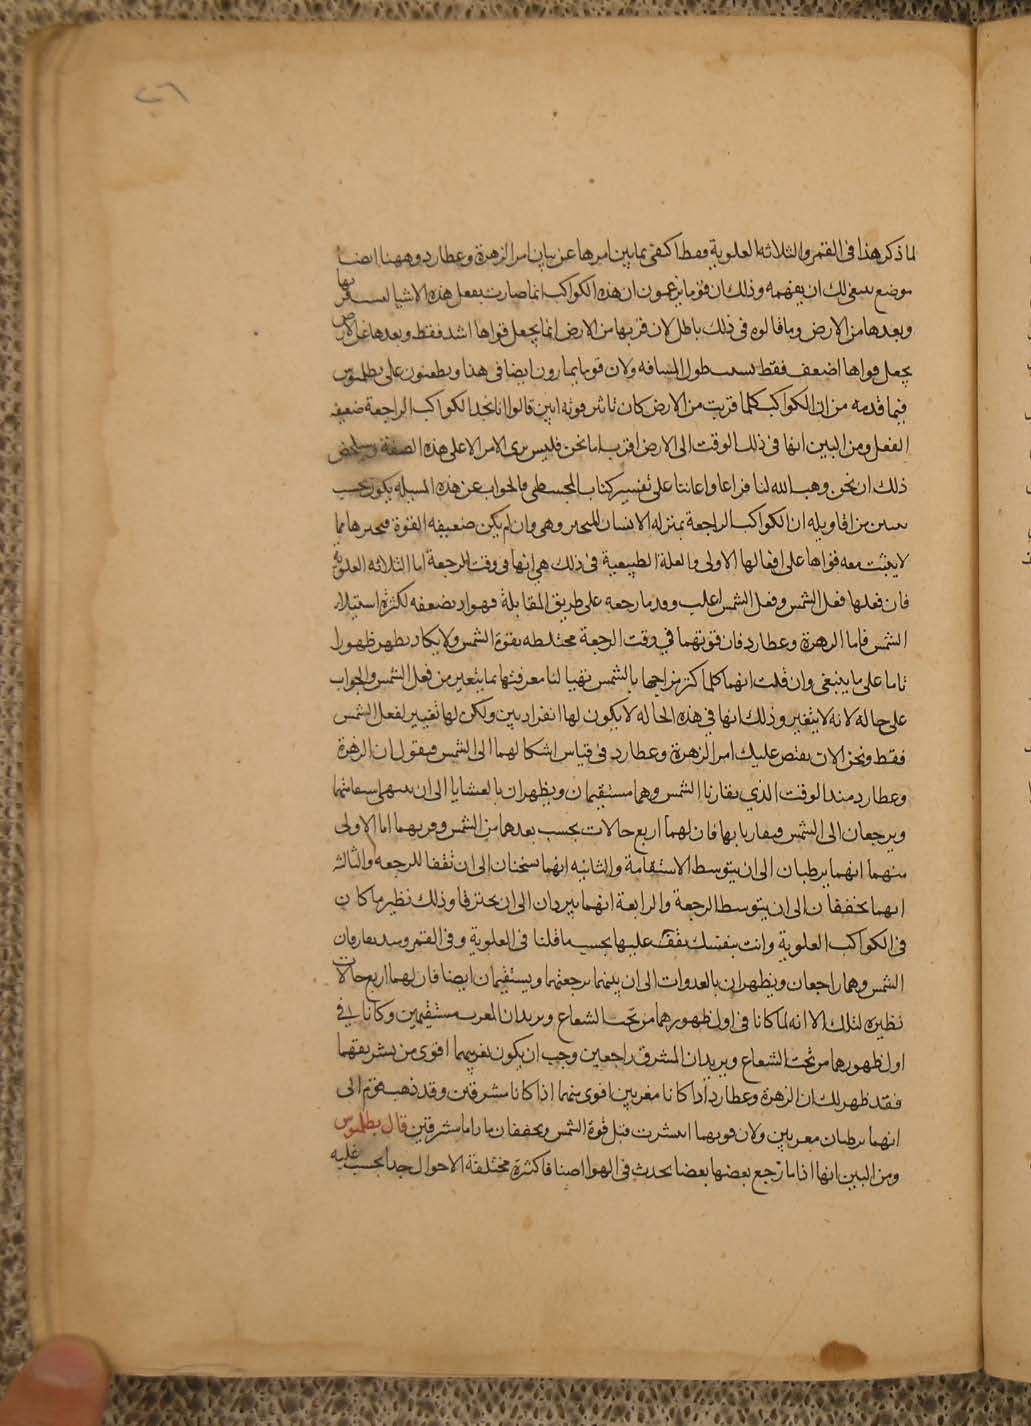 ٢٦
لما ذكر هذا فى القمر والثلاثه العلوية فقط اكتفى بما بين امرها عن بيان امر الزهرة وعطارد وههنا ايضا
موضع ينبغى لك ان تفهمه وذلك ان قوما يزعمون ان هذه الكواكب انما صارت تفعل هذه الاشيا لسبب قربها
وبعدها من الارض وما قالوه فى ذلك باطل لان قربها من الارض انما يجعل قواها اشد فقط وبعدها عن الارض
يجعل قواها اضعف فقط بسبب طول المسافه ولان قوما يمارون ايضا فى هذا ويطعنون على بطلميوس
فيما قدمه من ان الكواكب كلما قربت من الارض كان تاثير قوته ابين قالوا انا نجد الكواكب الراجعة ضعيفه
الفعل ومن البين انها فى ذلك الوقت الى الارض اقرب اما نحن فليس نرى الامر الا على هذه الصفة وسنلخص
ذلك ان نحن وهب الله لنا فراغا واعاننا على تفسير كتاب المجسطى فالجواب عن هذه المسله يكون بحسب
من اقاويله ان الكواكب الراجعة بمنزله الانسان المتحير وهى وان لم يكن ضعيفه القوة فتحيرها مما
لا يثبت معه قواها على افعالها الاولى والعلة الطبيعية فى ذلك هى انها فى وقت الرجعة اما الثلاثه العلوية
فان فعلها فعل الشمس وفعل الشمس اغلب وقدما رجعه على طريق المقابلة فهوا بضعفه لكثرة استيلا
الشمس فاما الزهرة وعطارد فان قوتهما فى وقت الرجعة مختلطه بقوة الشمس ولا يكاد يظهر ظهورا
تاما على ما ينبغى وان قلت انهما كلما كثر مزاجها بالشمس تهيا لنا معرفتها بما يتغير من فعل الشمس والجواب
على حاله لانه لا يتغير وذلك انها فى هذه الحاله لا يكون لها انفراد بين ولكن لها تغيير لفعل الشمس
فقط ونحن الان نقتص عليك امر الزهرة وعطارد فى قياس اشكالهما الى الشمس فيقول ان الزهرة
وعطارد منذ الوقت الذي يقارنا الشمس وهما مستقيمان ويظهران بالعشايا الى ان تنتهى استقامتهما
ويرجعان الى الشمس فيقاربا بها فان لهما اربع حالات بحسب بعدهما من الشمس وقربهما اما الاولى
منهما انهما يرطبان الى ان يتوسط الاستقامة والثانيه انهما يسخنان الى ان تقفا للرجعه والثالثه
انهما يخففان الى ان يتوسط الرجعة والرابعة انهما يبردان الى ان يحترقا وذلك نظير ما كان
فى الكواكب العلوية وانت بنفسك تقف عليها بحسب ما قلنا فى العلوية وفى القمر ومنذ يفارقان
الشمس وهما راجعان ويظهران بالغدوات الى ان يتمما رجعتهما ويستقيمان ايضا فان لهما اربع حالات
نظيره لتلك الا انه لما كانا فى اول ظهورهما من تحت الشعاع ويريدان المغرب مستقيمين وكانا فى
اول ظهورهما من تحت الشعاع ويريدان المشرق راجعين وجب ان يكون تغريبهما اقوى من تشريقهما
فقد ظهر لك ان الزهرة وعطارد اذا كانا مغربين اقوى منهما اذا كانا مشرقين وقد ذهب قوم الى
انهما يرطبان مغربين ولان قوتهما انتشرت قبل قوة الشمس ويخففان ما داما مشرقين قال بطلميوس
ومن البين انها اذا مازج بعضها بعضا يحدث فى الهوا اصنافا كثيرة مختلفة الاحوال جدا بحسب غلبه